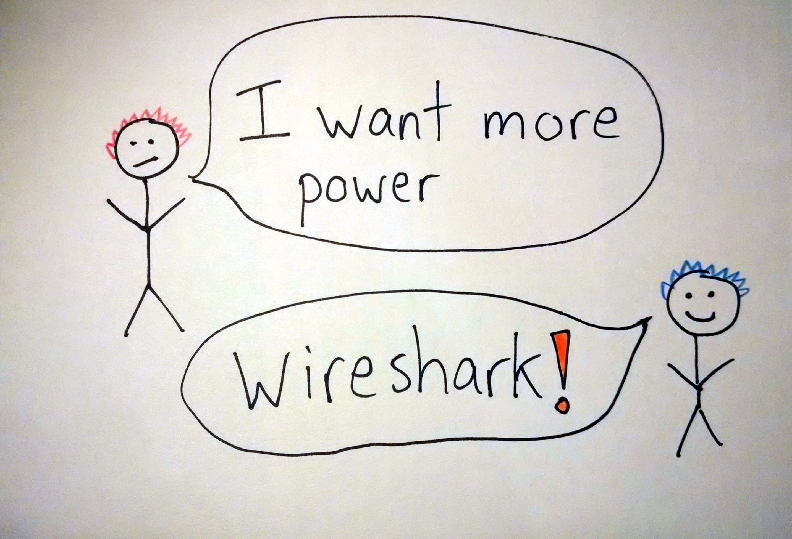 I want more
power
Wireshark!